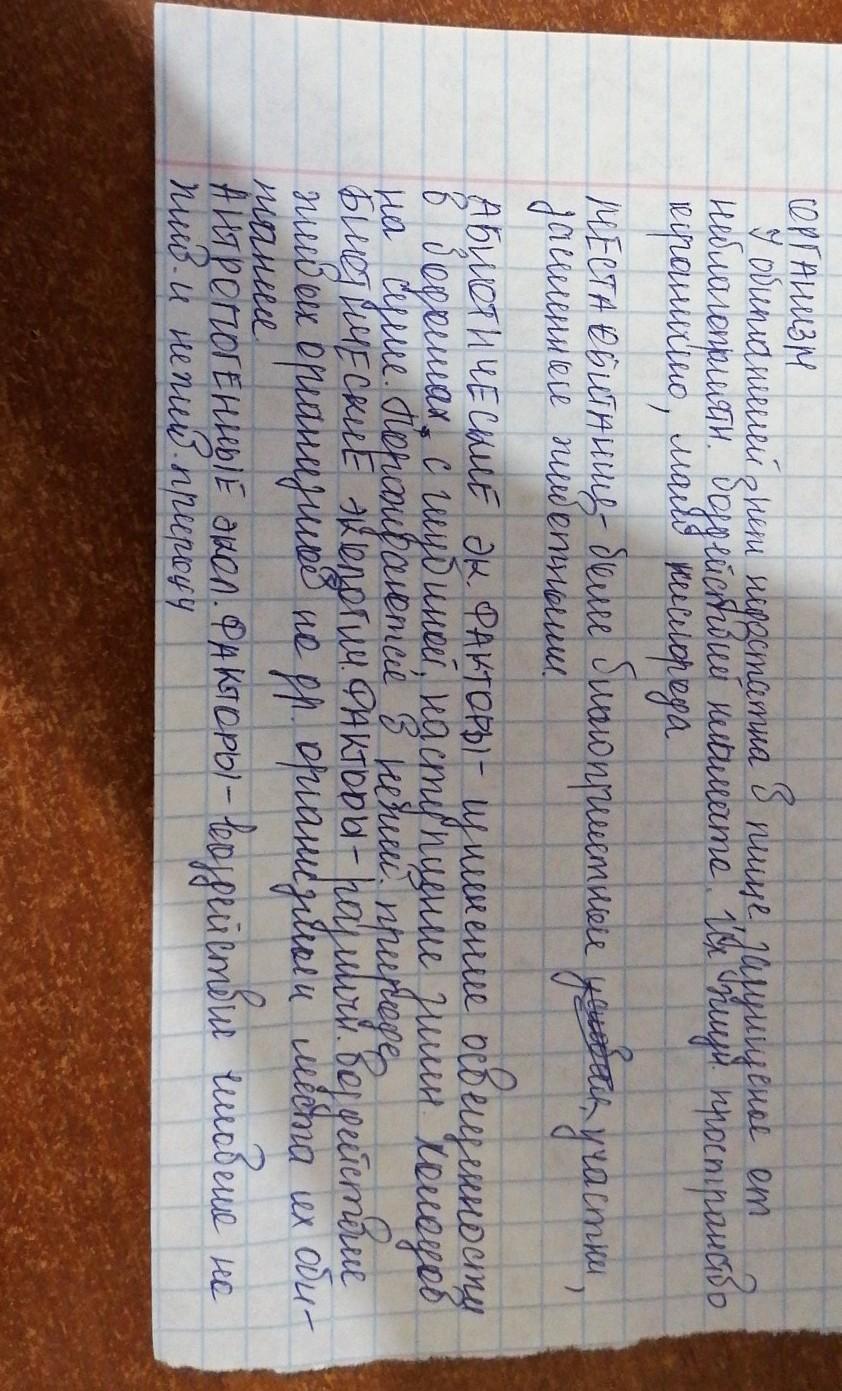 ОРГАНИЗМ
У обитателей нет недостатка в пище, защищенное от
неблагоприятн. воздействий климата. Их жизн. пространство
ограничено, мало кислорода
МЕСТА ОБИТАНИЕ - более благоприятные участки,
заселенные животными.
АБИОТИЧЕСКИЕ ЭК. ФАКТОРЫ - изменение освещенности
в водоемах с глубиной, наступление зимн. холодов
на суше. Порождаются в неживой. природе
БИОТИЧЕСКИЕ ЭКОЛОГИЧ. ФАКТОРЫ - различн. воздействие
живых организмов на др. организмы и места их оби-
тание
АНТРОПОГЕННЫЕ ЭКОЛ. ФАКТОРЫ - воздействие человека на
жив. и нежив. природу